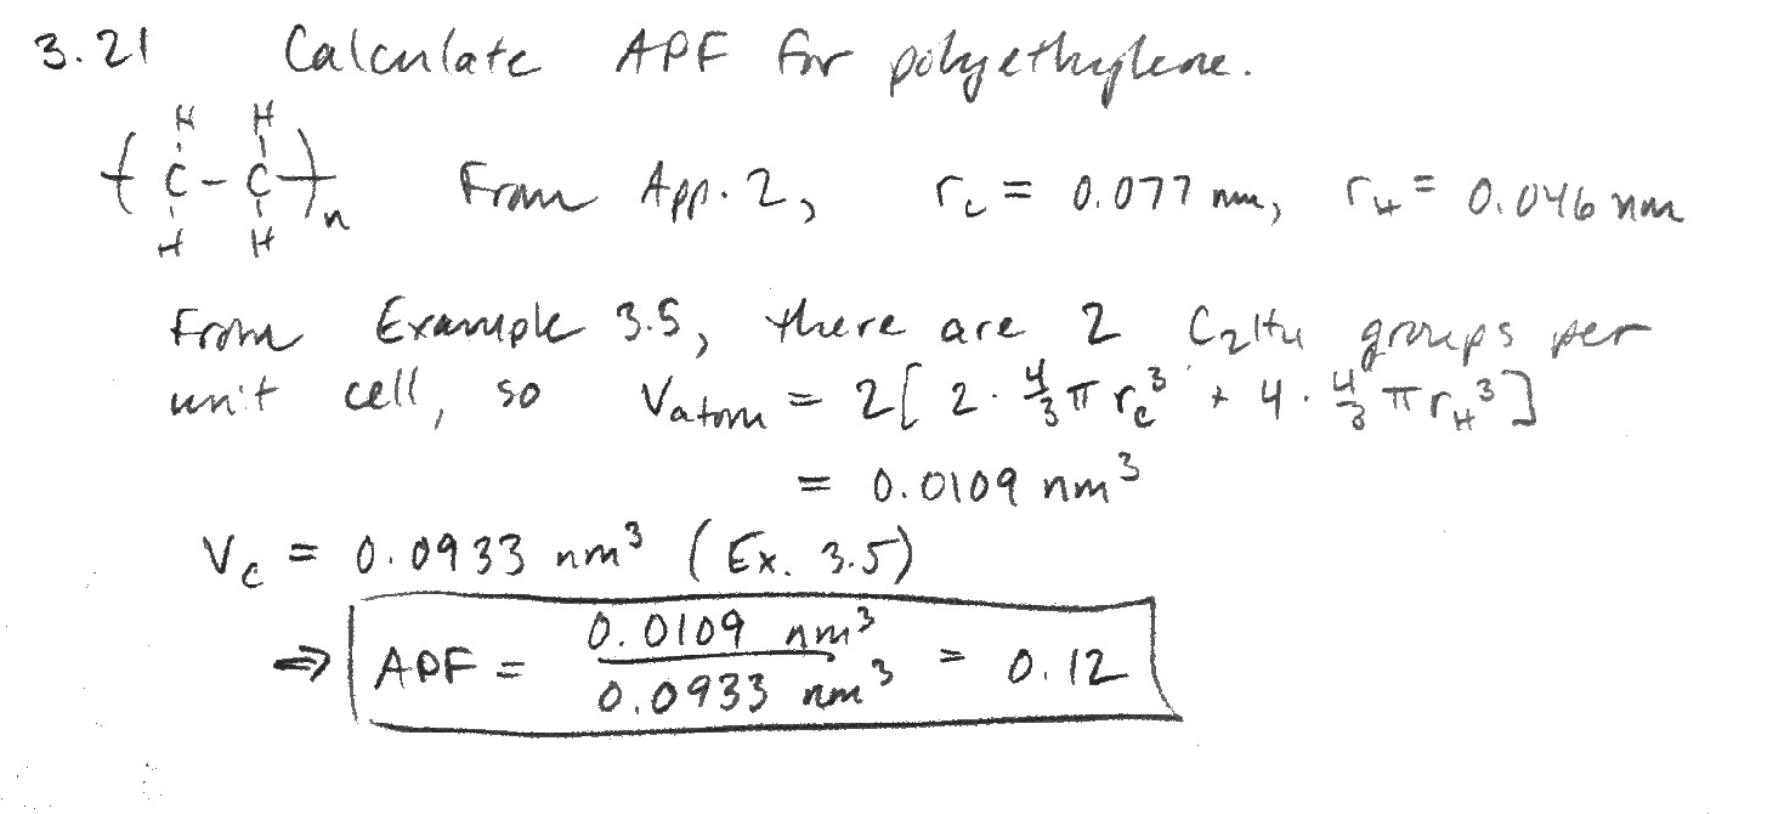 3.21 Calculate APF for polyethylene.
H H
( C - C )n From App. 2, r_c = 0.077 nm, r_H = 0.046 nm
H H
From Example 3.5, there are 2 C₂H₄ groups per
unit cell, so V_atom = 2[2 · 4/3 π r_c³ + 4 · 4/3 π r_H³]
= 0.0109 nm³
V_c = 0.0933 nm³ (Ex. 3.5)
⇒ APF = 0.0109 nm³ / 0.0933 nm³ = 0.12